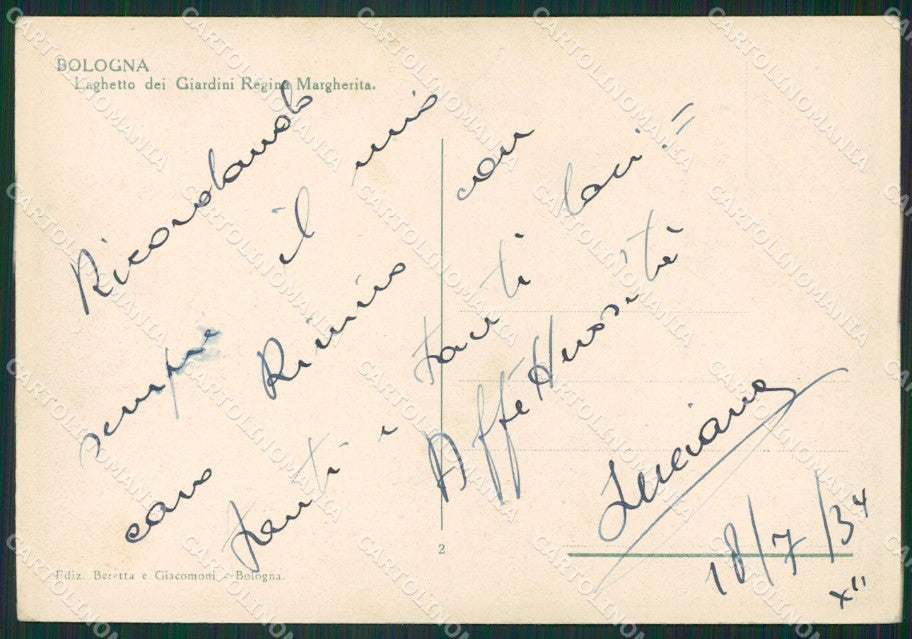 BOLOGNA
Laghetto dei Giardini Regina Margherita.
Ricordando
sempre il mio
caro Rimini con
tanti e tanti baci!!
Affettuosità
Luciano
18/7/34
XII
2
Ediz. Beretta e Giacomoni - Bologna.
CARTOLINOMANIA